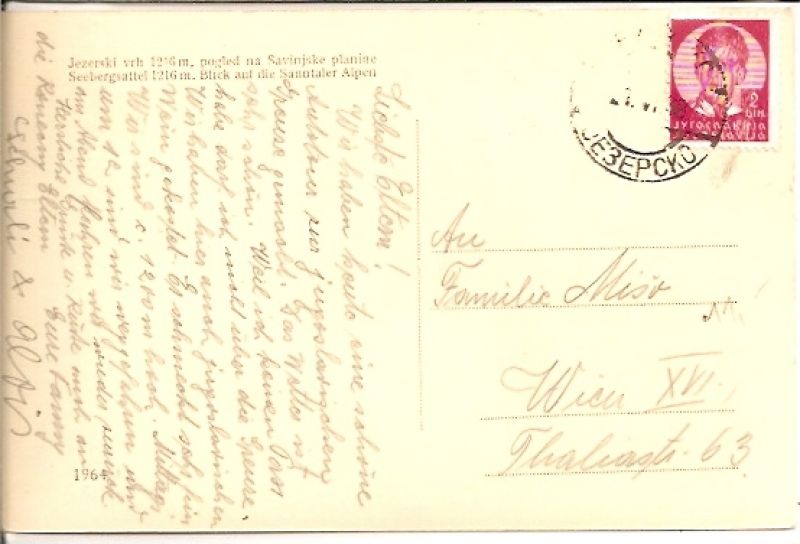 Jezerski vrh 1216 m, pogled na Savinjske planine
Seebergsattel 1216 m. Blick auf die Sanntaler Alpen
Liebste Eltern!
Wir haben heute eine schöne
Autotour zur jugoslawischen
Grenze gemacht. Das Wetter ist
sehr schön. Weil ich keinen Pass
habe darf ich nicht über die Grenze.
Wir haben hier auch jugoslawischen
Wein gekostet. Er schmeckt sehr fein
Wir sind c. 1200 m hoch. Mittags
um 12 sind wir weggefahren und
am Abend fahren wir wieder zurück.
Herzliche Grüße u. Küsse auch an
die Eltern Eure Fanny
& Alois
1964
2 DIN.
ЈУГОСЛАВИЈА
ЈЕЗЕРСКО
An
Familie Mišo
Wien XVI.,
Thaliastr. 63